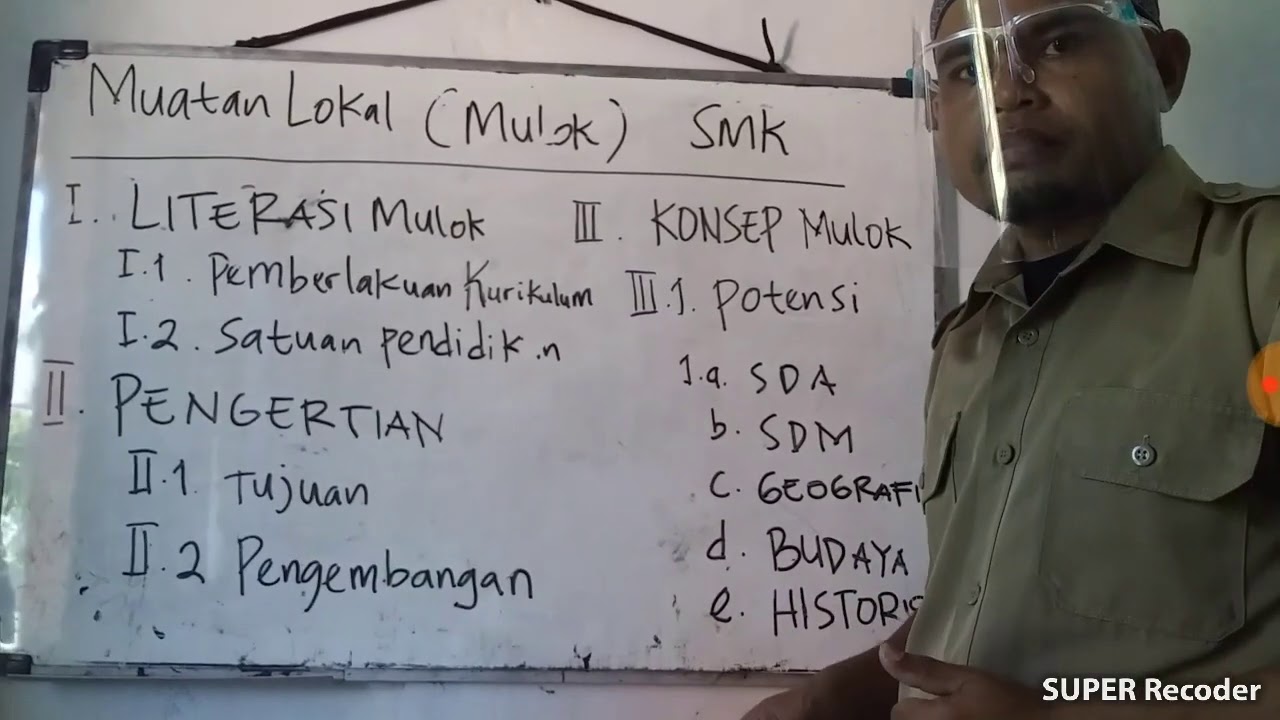 Muatan Lokal (Mulok) SMK
I. LITERASI Mulok
I.1. Pemberlakuan Kurikulum
I.2. Satuan pendidik.n
II. PENGERTIAN
II.1. Tujuan
II.2 Pengembangan
III. KONSEP Mulok
III.1. Potensi
1.a. SDA
b. SDM
c. GEOGRAFI
d. BUDAYA
e. HISTORIS
SUPER Recoder